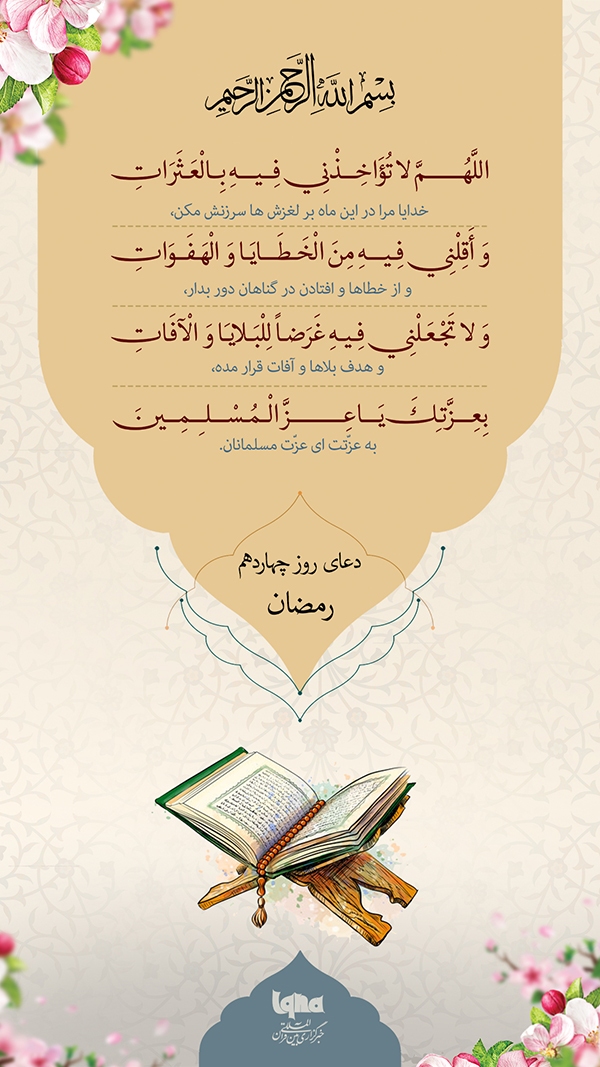 بِسْمِ اللَّهِ الرَّحْمَنِ الرَّحِيمِ
اللَّهُمَّ لا تُؤَاخِذْنِي فِيهِ بِالْعَثَرَاتِ
خدایا مرا در این ماه بر لغزش ها سرزنش مکن،
وَ أَقِلْنِي فِيهِ مِنَ الْخَطَايَا وَ الْهَفَوَاتِ
و از خطاها و افتادن در گناهان دور بدار،
وَ لا تَجْعَلْنِي فِيهِ غَرَضاً لِلْبَلايَا وَ الْآفَاتِ
و هدف بلاها و آفات قرار مده،
بِعِزَّتِكَ يَا عِزَّ الْمُسْلِمِينَ
به عزّتت ای عزّت مسلمانان.
دعای روز چهاردهم
رمضان
iqna
خبرگزاری بین المللی قرآن